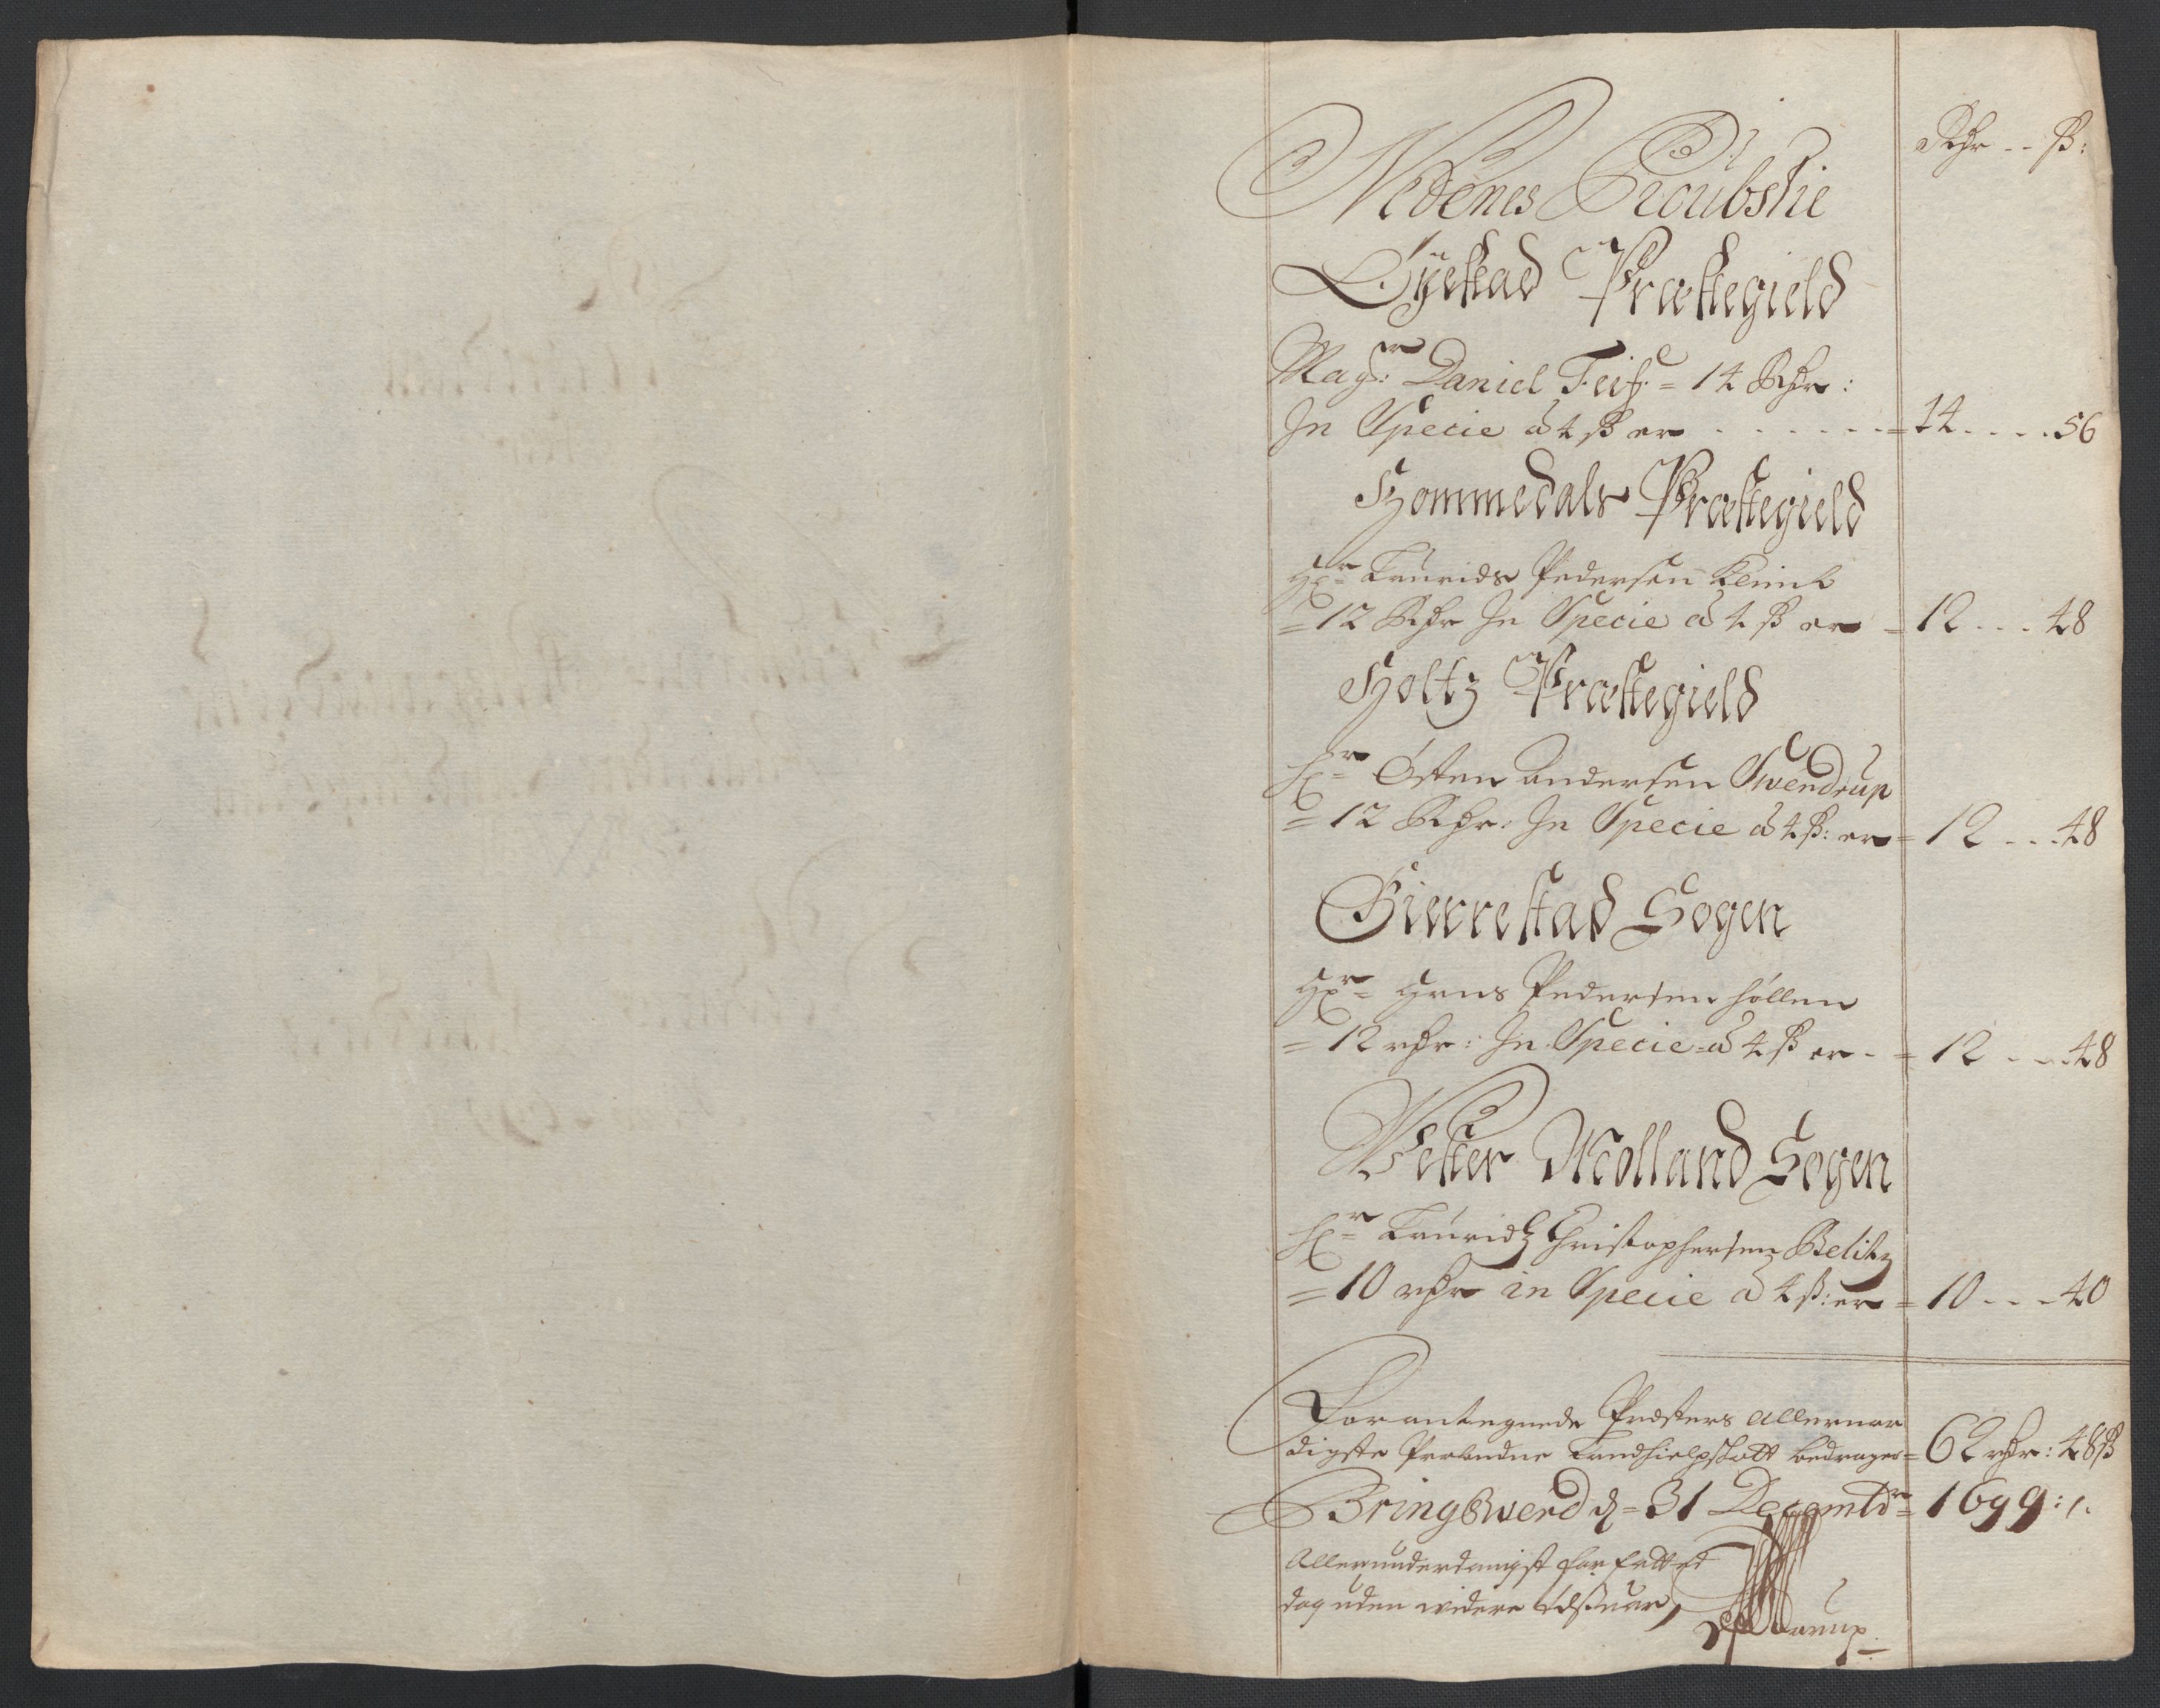 Rdr -- ß:
Nedenes Proubstie
Øyestad Præstegield
Magr: Daniel Teis = 14 Rdr:
In Specie a 4 ß er - - - - - - = 14 - - - - 56
Hommedals Præstegield
Hr= Laurids Pedersen
= 12 Rdr In Specie a 4 ß er = 12 - - - 48
Holtz Præstegield
Hr= Østen Andersen Swendrup
= 12 Rdr: In Specie a 4 ß: er = 12 - - - 48
Gierrestad Sogen
Hr= Hans Pedersen Höllen
= 12 rdr: In Specie a 4 ß er - = 12 - - - 48
Vester Molland Sogen
Hr= Lauridtz Christophersen Belitz
= 10 rdr in Specie a 4 ß: er = 10 - - - 40
Forantegnede Præsters allernaa
digste Landhielpskatt bedrager = 62 rdr: 48 ß
Bringsverd d= 31 Decembr= 1699:
Allerunderdanigst forfattet
dog uden widere